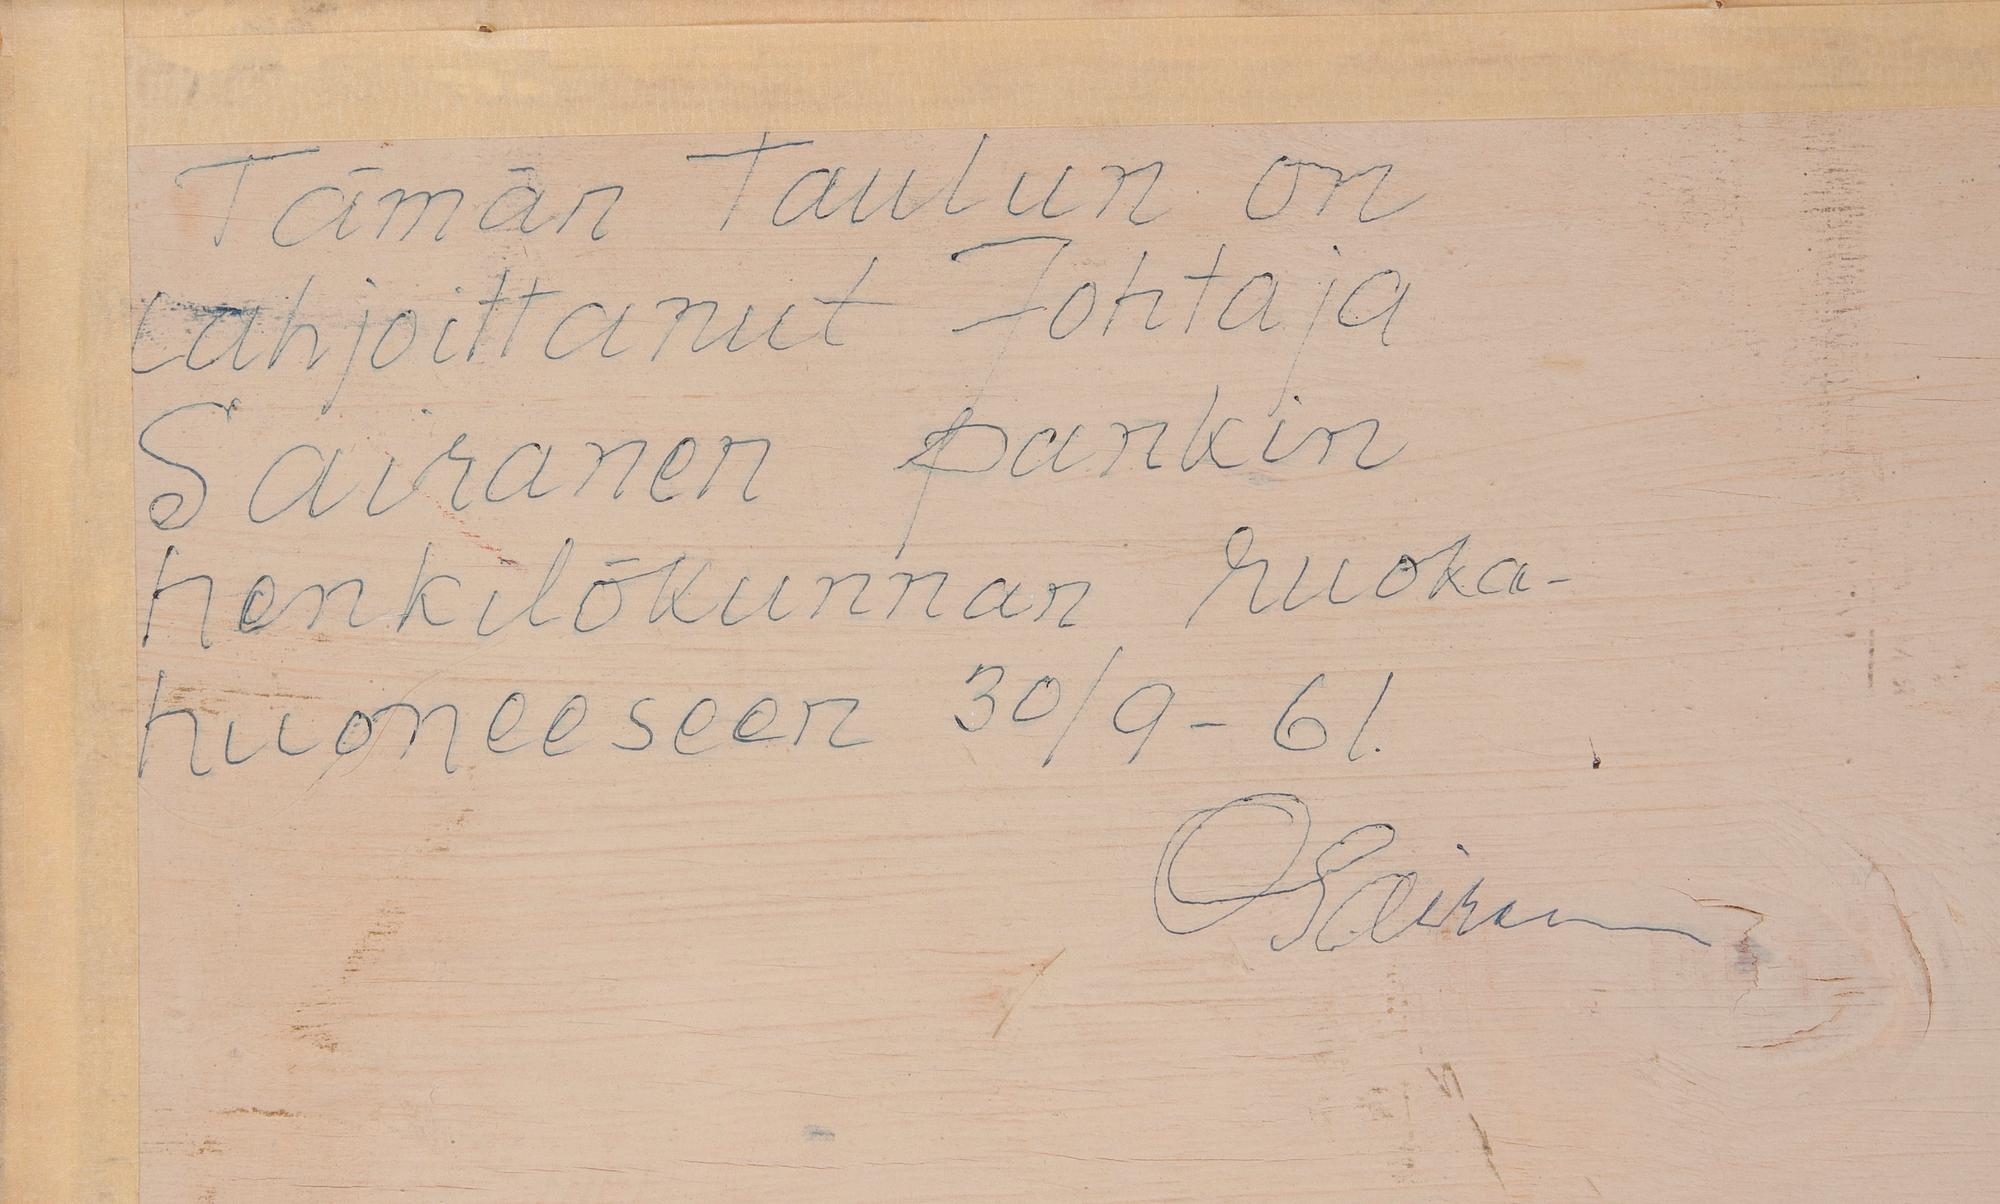 Tämän Taulun on
Lahjoittanut Johtaja
Sairanen pankin
henkilökunnan ruoka-
huoneeseen 30/9-61.
OSairanen